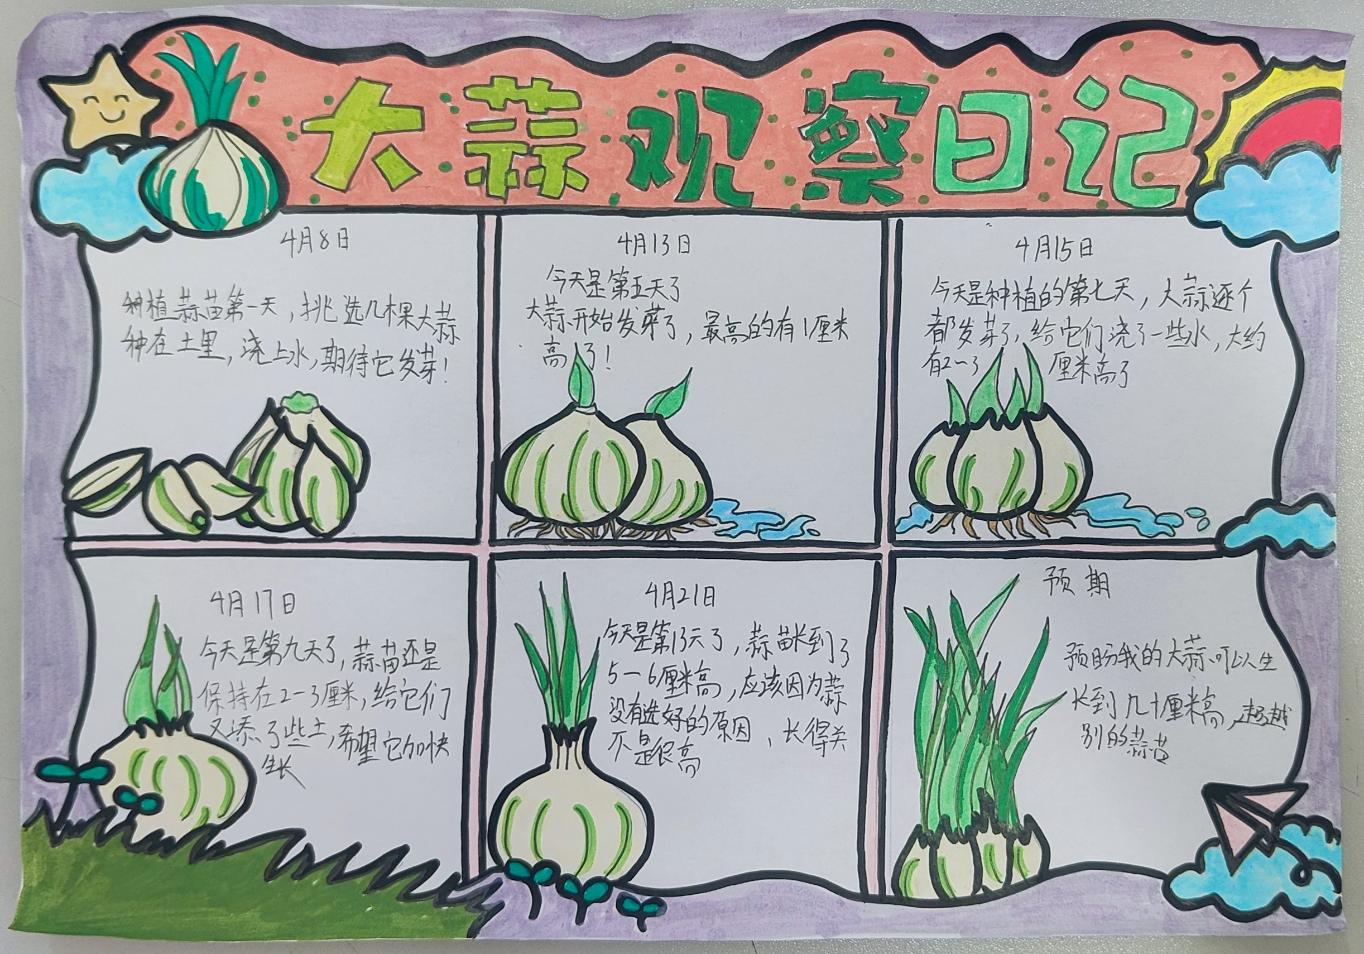 大蒜观察日记
4月8日
种植蒜苗第一天，挑选几棵大蒜
种在土里，浇上水，期待它发芽！
4月13日
今天是第五天了
大蒜开始发芽了，最高的有1厘米
高了！
4月15日
今天是种植的第七天，大蒜逐个
都发芽了，给它们浇了一些水，大约
有2～3厘米高了
4月17日
今天是第九天了，蒜苗还是
保持在2-3厘米，给它们
又添了些土，希望它加快
生长
4月21日
今天是第13天了，蒜苗长到了
5-6厘米高，应该因为蒜
没有选好的原因、长得
不是很高
预期
预盼我的大蒜可以生
长到几十厘米高，超越
别的蒜苗